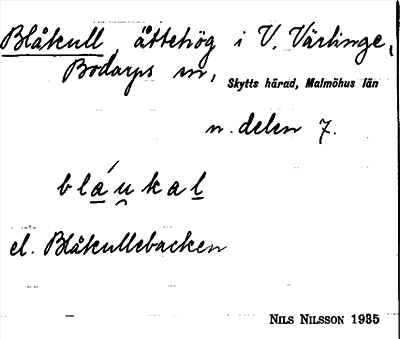 Blåkull, ättehög i V. Värlinge,
Bodarps sn, Skytts härad, Malmöhus län
n. delen 7.
bláukal
el. Blåkullebacken
NILS NILSSON 1935